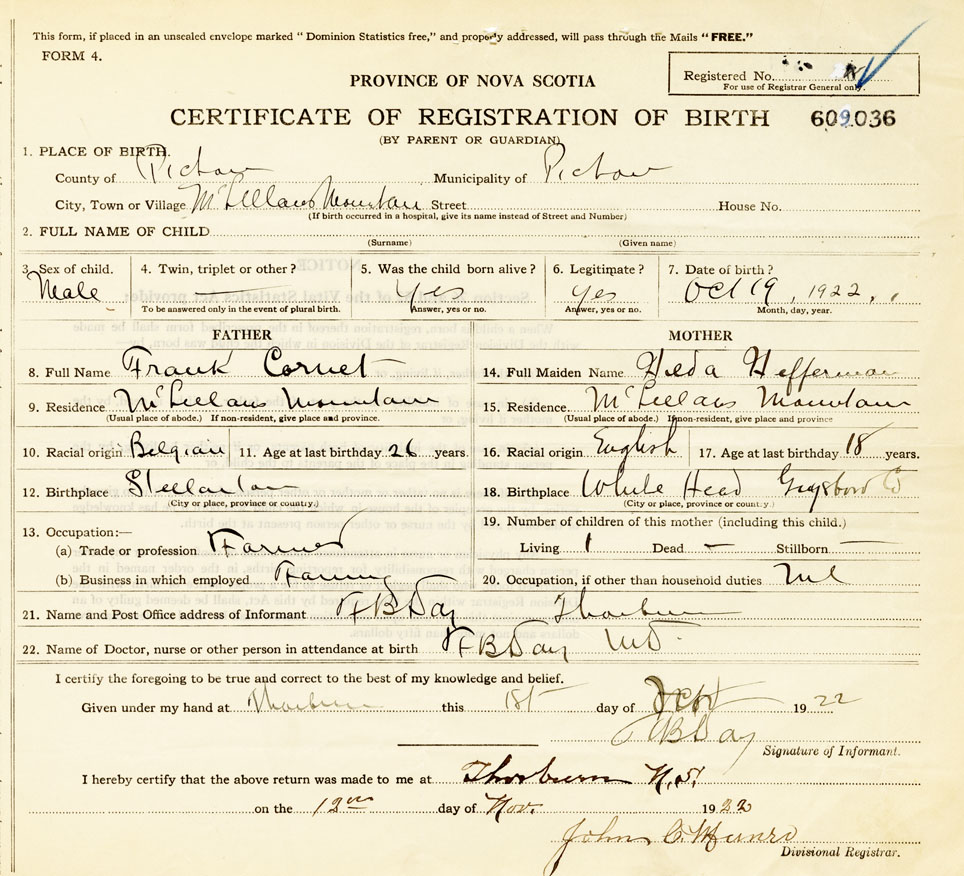 This form, if placed in an unsealed envelope marked "Dominion Statistics free," and properly addressed, will pass through the Mails "FREE."
FORM 4.
Registered No.
For use of Registrar General only.
PROVINCE OF NOVA SCOTIA
CERTIFICATE OF REGISTRATION OF BIRTH 609036
(BY PARENT OR GUARDIAN)
1. PLACE OF BIRTH.
County of Pictou Municipality of Pictou
City, Town or Village McLellans Mountain Street House No.
(If birth occurred in a hospital, give its name instead of Street and Number)
2. FULL NAME OF CHILD
(Surname) (Given name)
3. Sex of child. 4. Twin, triplet or other? 5. Was the child born alive? 6. Legitimate? 7. Date of birth?
Male — Yes Yes Oct 19, 1922
To be answered only in the event of plural birth. Answer, yes or no. Answer, yes or no. Month, day, year.
FATHER MOTHER
8. Full Name Frank Cornet 14. Full Maiden Name Hilda Hefferman
9. Residence McLellans Mountain 15. Residence McLellans Mountain
(Usual place of abode.) If non-resident, give place and province. (Usual place of abode) If non-resident, give place and province
10. Racial origin Belgian 11. Age at last birthday 26 years. 16. Racial origin English 17. Age at last birthday 18 years.
12. Birthplace Stellarton 18. Birthplace White Head Guysboro Co
(City or place, province or country.) (City or place, province or country.)
13. Occupation:— 19. Number of children of this mother (including this child.)
(a) Trade or profession Farmer Living 1 Dead — Stillborn —
(b) Business in which employed Farming 20. Occupation, if other than household duties Nil
21. Name and Post Office address of Informant F B Day Thorburn
22. Name of Doctor, nurse or other person in attendance at birth F B Day M D
I certify the foregoing to be true and correct to the best of my knowledge and belief.
Given under my hand at Thorburn this day of Oct 1922
F B Day
Signature of Informant.
I hereby certify that the above return was made to me at Thorburn N.S.
on the 12 day of Nov. 1922
John C. Munro
Divisional Registrar.